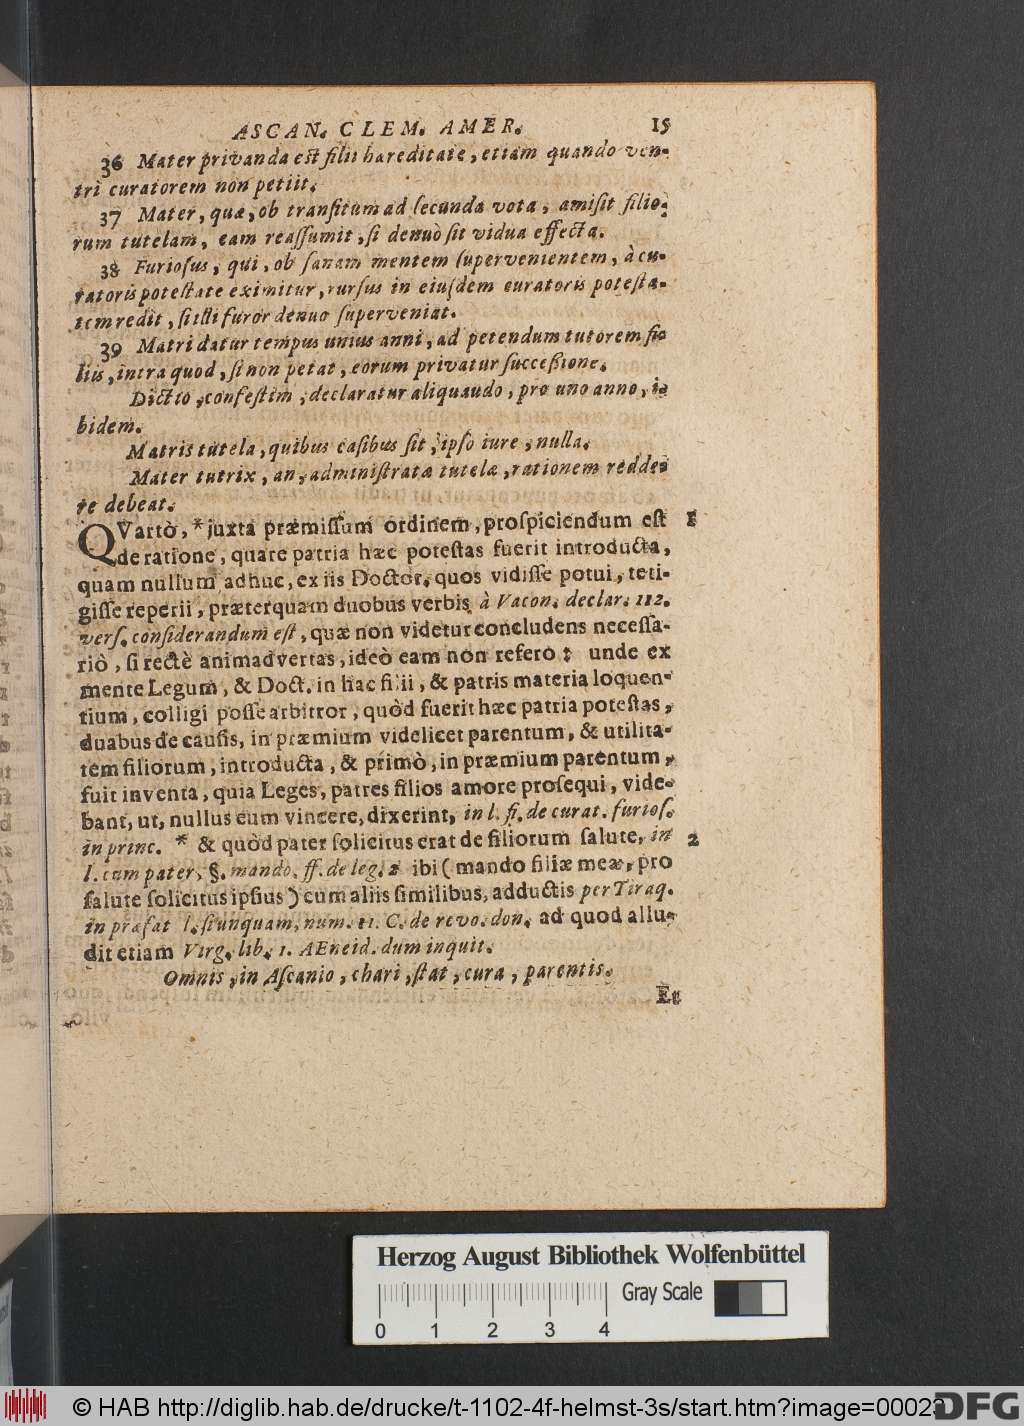 ASCAN. CLEM. AMER. 15
36 Mater privanda est filii hæreditate, etiam quando ven-
tri curatorem non petiit.
37 Mater, quæ, ob transitum ad secunda vota, amisit filio-
rum tutelam, eam reassumit, si denuò sit vidua effecta.
38 Furiosus, qui, ob sanam mentem supervenientem, à cu-
ratoris potestate eximitur, rursus in eiusdem curatoris potesta-
tem redit, si illi furor denuo superveniat.
39 Matri datur tempus unius anni, ad petendum tutorem fi-
liis, intra quod, si non petat, eorum privatur successione.
Dictio, confestim, declaratur aliquando, pro uno anno, i-
bidem.
Matris tutela, quibus casibus sit, ipso iure, nulla.
Mater tutrix, an, administratæ tutelæ, rationem redde-
re debeat.
QVartò, * juxta præmissum ordinem, prospiciendum est 1
de ratione, quare patria hæc potestas fuerit introducta,
quam nullum adhuc, ex iis Doctor. quos vidisse potui, teti-
gisse reperii, præterquam duobus verbis à Vacon. declar. 112.
vers. considerandum est, quæ non videtur concludens necessa-
riò, si rectè animadvertas, ideò eam non refero: unde ex
mente Legum, & Doct. in hac filii, & patris materia loquen-
tium, colligi posse arbitror, quòd fuerit hæc patria potestas,
duabus de causis, in præmium videlicet parentum, & utilita-
tem filiorum, introducta, & primò, in præmium parentum,
fuit inventa, quia Leges, patres filios amore prosequi, vide-
bant, ut, nullus eum vincere, dixerint, in l. fi. de curat. furios.
in princ. * & quòd pater solicitus erat de filiorum salute, in 2
l. cum pater, §. mando. ff. de leg. 2 ibi (mando filiæ meæ, pro
salute solicitus ipsius) cum aliis similibus, adductis per Tiraq.
in præfat l. si unquam, num. 11. C. de revo. don. ad quod allu-
dit etiam Virg. lib. 1. AEneid. dum inquit.
Omnis, in Ascanio, chari, stat, cura, parentis.
Et
Herzog August Bibliothek Wolfenbüttel
Gray Scale
0 1 2 3 4
© HAB http://diglib.hab.de/drucke/t-1102-4f-helmst-3s/start.htm?image=00023
DFG